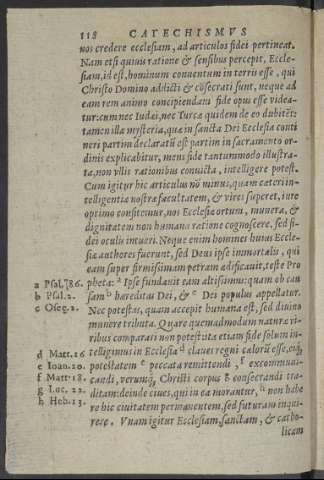 118 CATECHISMVS
nos credere ecclesiam, ad articulos fidei pertineat.
Nam etsi quiuis ratione & sensibus percepit, Eccle-
siam, id est, hominum conuentum in terris esse, qui
Christo Domino addicti & cōsecrati sunt, neque ad
eam rem animo concipiendam fide opus esse videa-
tur: cum nec Iudei, nec Turcæ quidem de eo dubitēt:
tamen illa mysteria, quæ in sancta Dei Ecclesia conti
neri partim declaratū est partim in sacramento or-
dinis explicabitur, mens fide tantummodo illustra-
ta, non vllis rationibus conuicta, intelligere potest.
Cum igitur hic articulus nō minus, quam ceteri in-
telligentiæ nostræ facultatem, & vires superet, iure
optimo confitemur, nos Ecclesiæ ortum, munera, &
dignitatem non humana ratione cognoscere, sed fi-
dei oculis intueri. Neque enim homines huius Eccle-
siæ authores fuerunt, sed Deus ipse immortalis, qui
eam super firmissimam petram ædificauit, teste Pro
a Psal. 86. pheta: a Ipse fundauit eam altissimus: quam ob cau
b Psal. 2. sam b hæreditas Dei, & c Dei populus appellatur.
c Osee. 2. Nec potestas, quam accepit humana est, sed diuino
munere tributa. Quare quemadmodum naturæ vi-
ribus comparari non potest: ita etiam fide solum in-
d Matt. 16 telligimus in Ecclesia d claues regni cælorū esse, eiq;
e Ioan. 20. potestatem e peccata remittendi, f excommuni-
f Matt. 18. candi, verumq; Christi corpus g consecrandi tra-
g Luc. 22. ditam: deinde ciues, qui in ea morantur, h non habe
h Heb. 13. re hic ciuitatem permanentem, sed futuram inqui-
rere. Vnam igitur Ecclesiam, sanctam, & catho-
licam